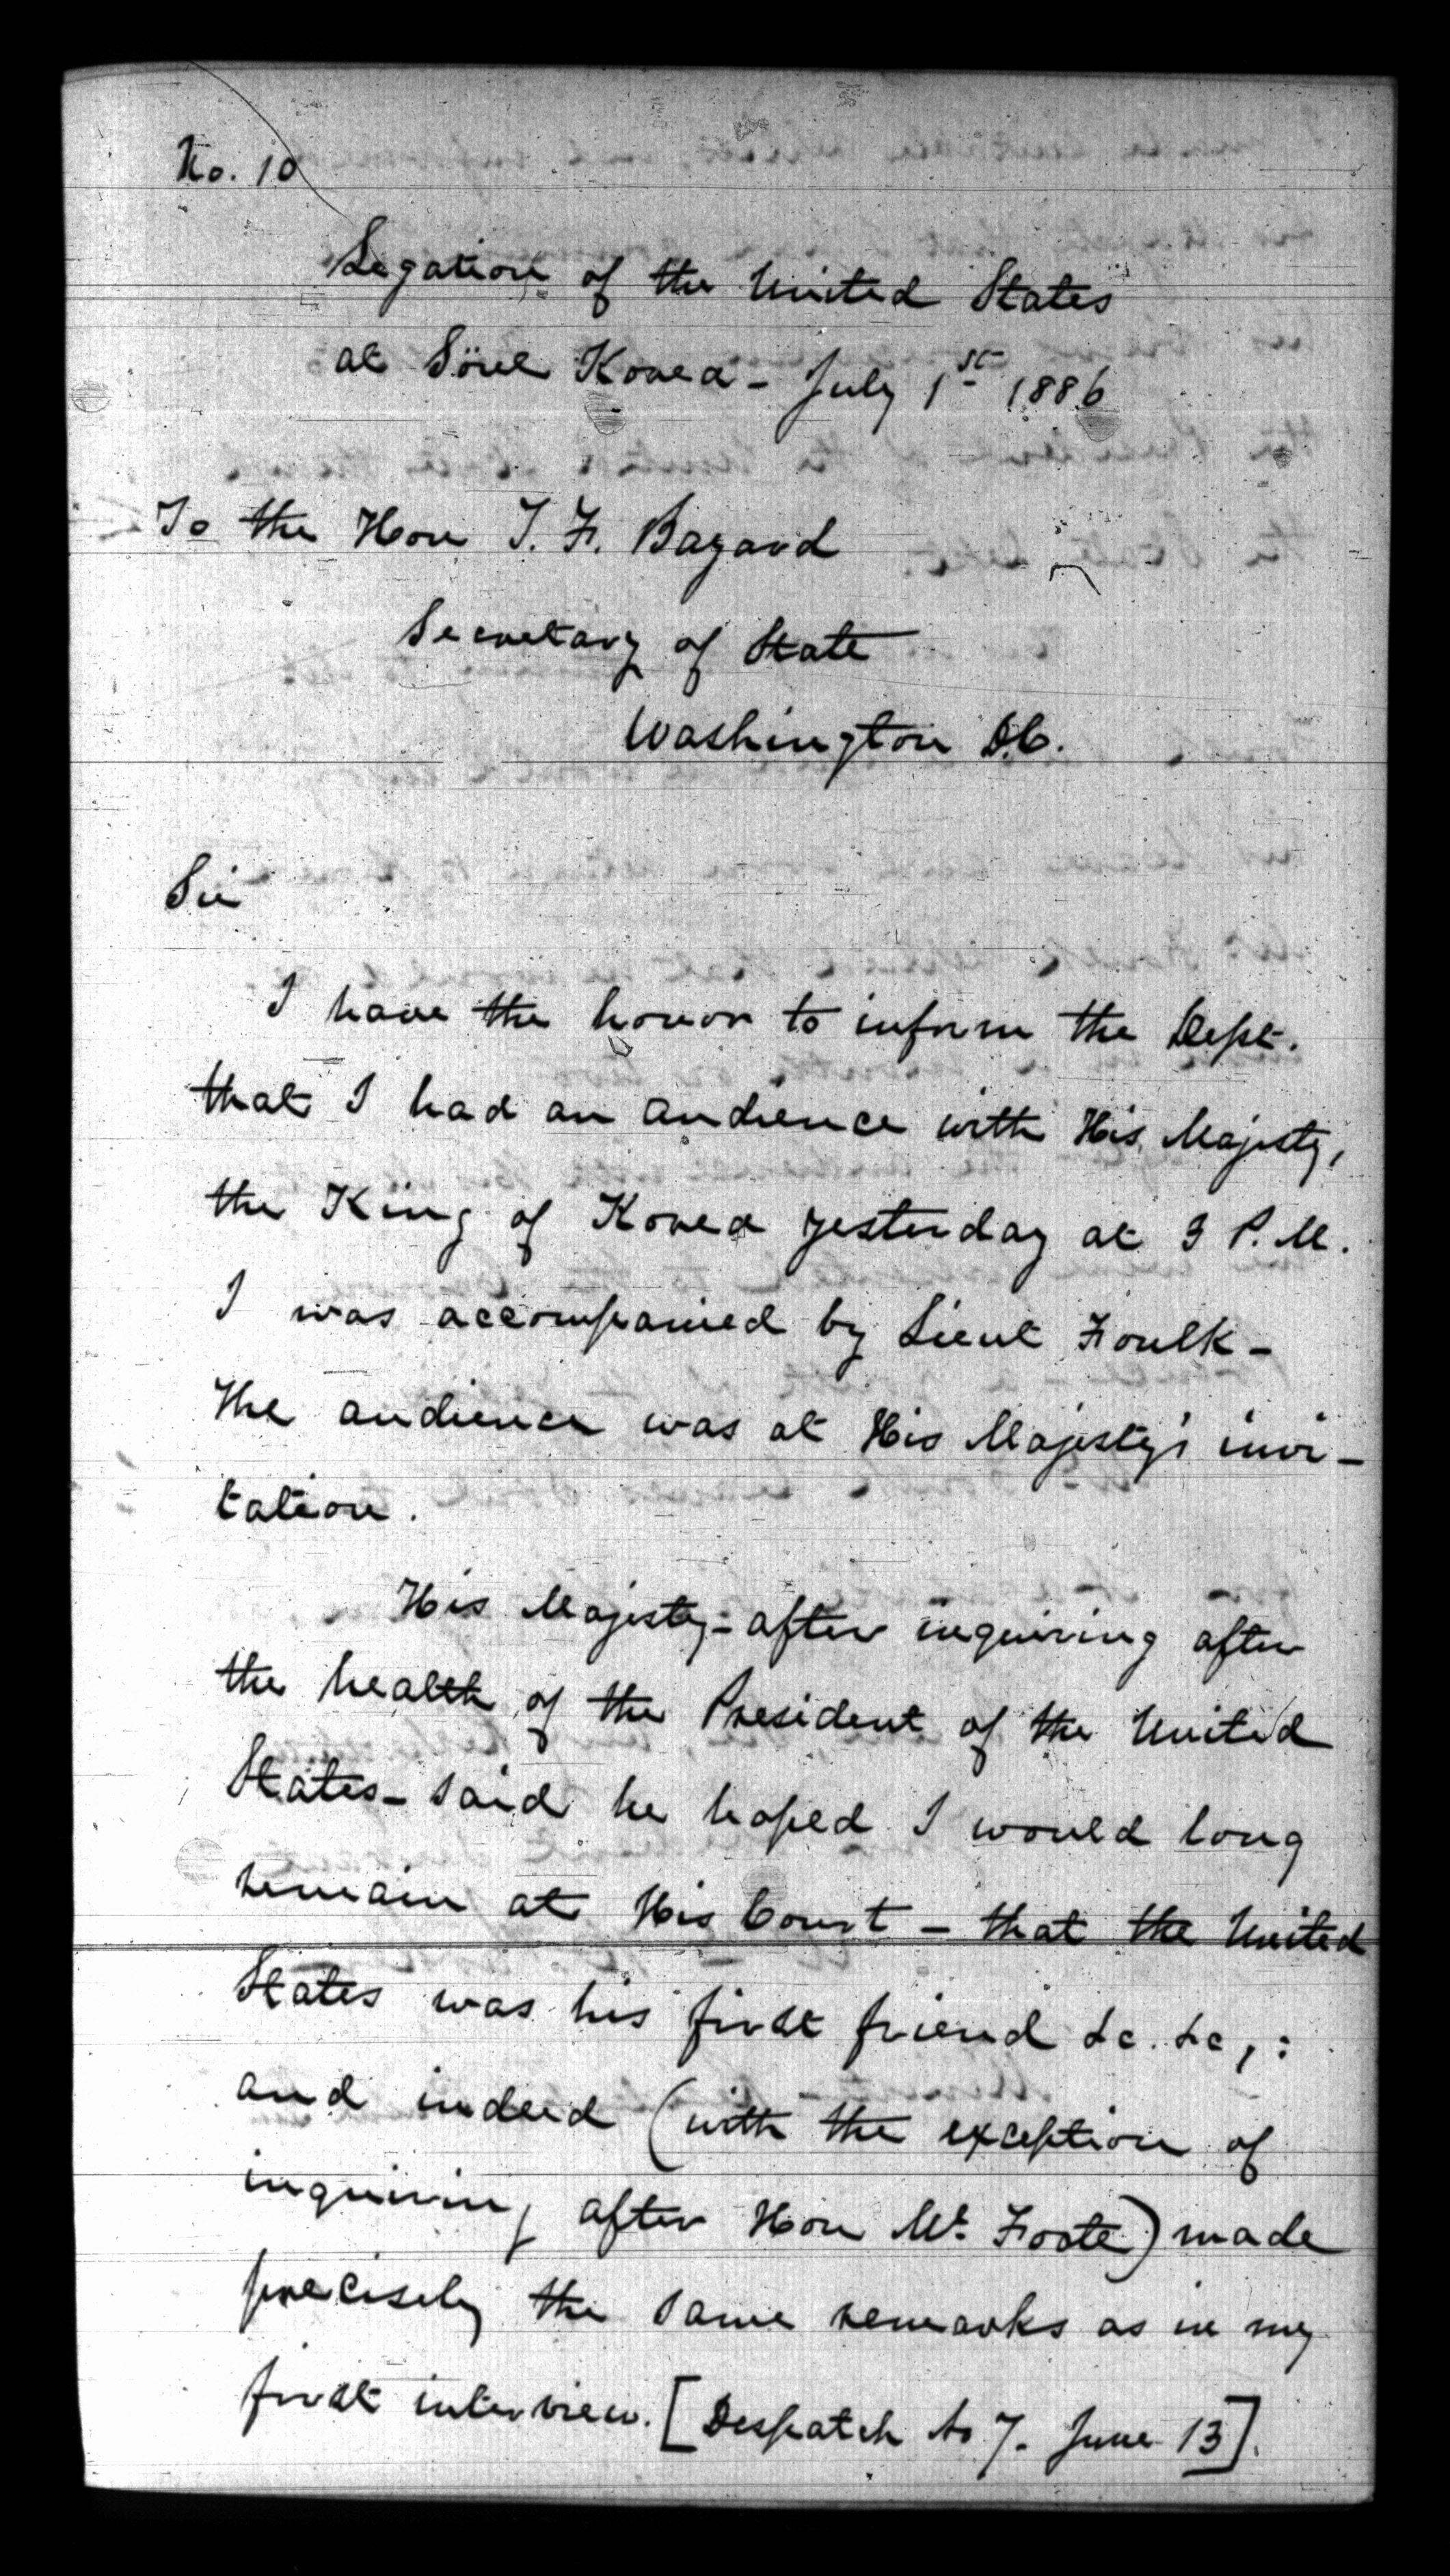 No. 10
Legation of the United States
at Söul Korea - July 1st 1886
To the Hon T. F. Bayard
Secretary of State
Washington D.C.
Sir
I have the honor to inform the Dept.
that I had an audience with His Majesty,
the King of Korea yesterday at 3 P.M.
I was accompanied by Lieut Foulk -
The audience was at His Majesty's invi-
tation.
His Majesty - after inquiring after
the health of the President of the United
States - said he hoped I would long
remain at His Court - that the United
States was his first friend &c. &c, :
and indeed (with the exception of
inquiring after Hon Mr. Foote) made
precisely the same remarks as in my
first interview. [Despatch No 7. June 13].